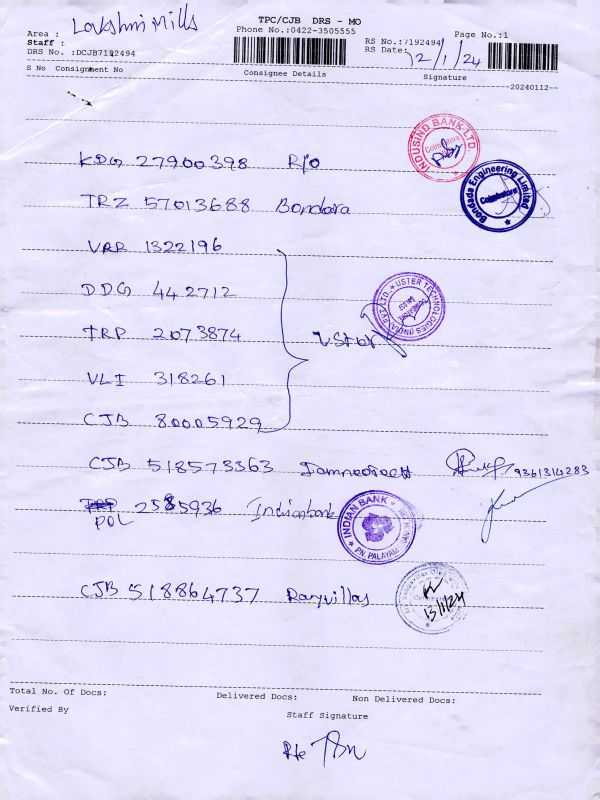 Lakshmi Mills
TPC/CJB DRS - MO
Area :
Phone No.:0422-3505555
Page No.:1
Staff :
RS No.:7192494
DRS No. :DCJB7192494
RS Date:
12/1/24
S No Consignment No
Consignee Details
Signature
20240112--
KDG 27900398 R/o
INDUSIND BANK LTD.
Coimbatore
TRZ 57013688 Bondara
Bondada Engineering Limited
Coimbatore
VRR 1322196
DDG 442712
USTER TECHNOLOGIES (INDIA) PVT. LTD.
TRP 2073874
Uster
VLI 318261
CJB 80005929
CJB 518573363
9361314283
POL 2585936 Indianbank
INDIAN BANK
P.N. PALAYAM
CJB 518864737 Rayvillas
13/1/24
Total No. Of Docs:
Delivered Docs:
Non Delivered Docs:
Verified By
Staff Signature